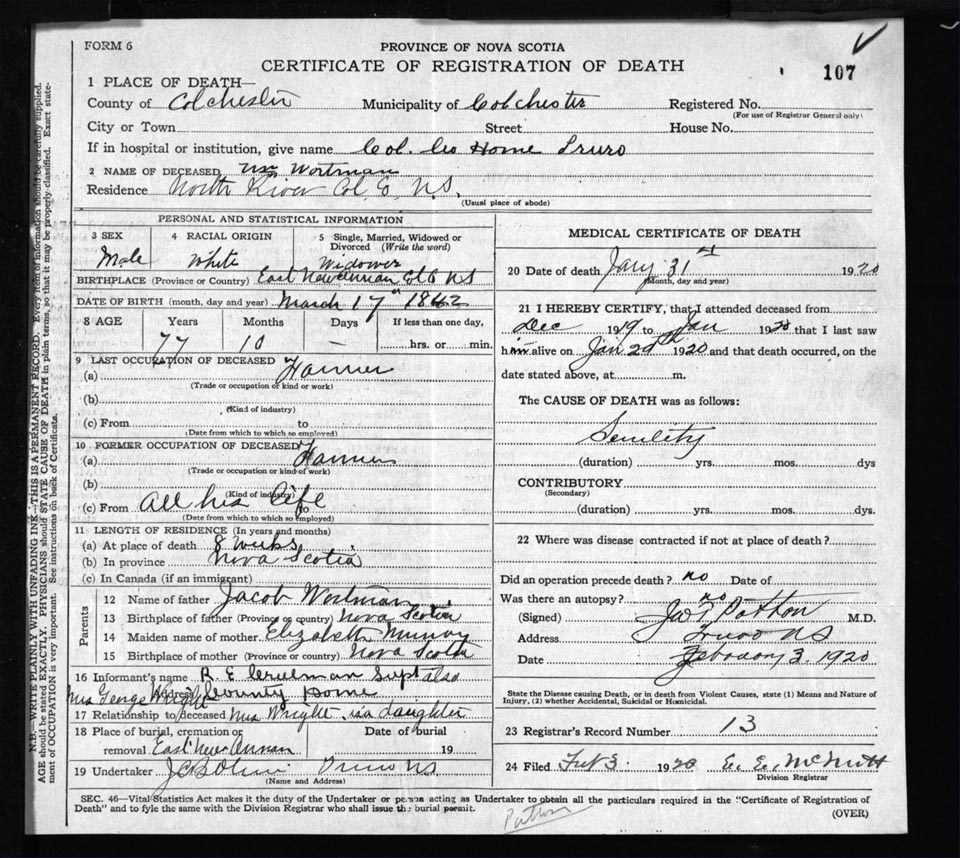 FORM 6
PROVINCE OF NOVA SCOTIA
CERTIFICATE OF REGISTRATION OF DEATH
107
1 PLACE OF DEATH—
County of Colchester Municipality of Colchester Registered No.
(For use of Registrar General only)
City or Town Street House No.
If in hospital or institution, give name Col. Co Home Truro
2 NAME OF DECEASED Wm Wortman
Residence North River Col. Co, N.S.
(Usual place of abode)
PERSONAL AND STATISTICAL INFORMATION
3 SEX 4 RACIAL ORIGIN 5 Single, Married, Widowed or Divorced (Write the word)
Male White Widower
BIRTHPLACE (Province or Country) East New Annan Col Co NS
DATE OF BIRTH (month, day and year) March 17th 1842
8 AGE Years Months Days If less than one day,
77 10 — hrs. or min.
9 LAST OCCUPATION OF DECEASED
(a) Farmer
(Trade or occupation or kind or work)
(b)
(Kind of industry)
(c) From to
(Date from which to which so employed)
10 FORMER OCCUPATION OF DECEASED
(a) Farmer
(Trade or occupation or kind of work)
(b)
(Kind of industry)
(c) From All his life to
(Date from which to which so employed)
11 LENGTH OF RESIDENCE (In years and months)
(a) At place of death 8 weeks
(b) In province Nova Scotia
(c) In Canada (if an immigrant)
Parents
12 Name of father Jacob Wortman
13 Birthplace of father (Province or country) Nova Scotia
14 Maiden name of mother Elizabeth Murray
15 Birthplace of mother (Province or country) Nova Scotia
16 Informant's name R E Supt also
Mrs George Wright Address County Home
17 Relationship to deceased Mrs Wright is a daughter
18 Place of burial, cremation or Date of burial
removal East New Annan 19
19 Undertaker Truro NS
(Name and Address)
MEDICAL CERTIFICATE OF DEATH
20 Date of death Jany 31st 1920
(Month, day and year)
21 I HEREBY CERTIFY, that I attended deceased from
Dec 1919 to Jan 1920 that I last saw
him alive on Jan 1920 and that death occurred, on the
date stated above, at m.
The CAUSE OF DEATH was as follows:
Senility
(duration) yrs. mos. dys
CONTRIBUTORY
(Secondary)
(duration) yrs. mos. dys.
22 Where was disease contracted if not at place of death?
Did an operation precede death? no Date of
Was there an autopsy? no
(Signed) Patton M.D.
Address Truro NS
Date February 3, 1920
State the Disease causing Death, or in death from Violent Causes, state (1) Means and Nature of
Injury, (2) whether Accidental, Suicidal or Homicidal.
23 Registrar's Record Number 13
24 Filed Feb 3 1920 E. E. McNutt
Division Registrar
SEC. 46—Vital Statistics Act makes it the duty of the Undertaker or person acting as Undertaker to obtain all the particulars required in the "Certificate of Registration of
Death" and to fyle the same with the Division Registrar who shall issue the burial permit.
(OVER)
Patton
N.B.—WRITE PLAINLY WITH UNFADING INK—THIS IS A PERMANENT RECORD. Every item of information should be carefully supplied.
AGE should be stated EXACTLY. PHYSICIANS should STATE CAUSE OF DEATH in plain terms, so that it may be properly classified. Exact state-
ment of OCCUPATION is very important. See instructions on back of Certificate.